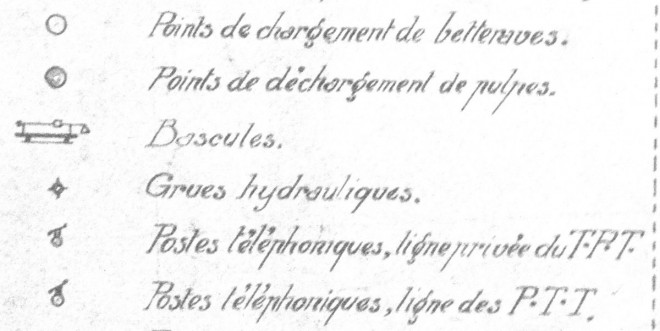 Points de chargement de betteraves.
Points de déchargement de pulpes.
Bascules.
Grues hydrauliques.
Postes téléphoniques, ligne privée du T.P.T.
Postes téléphoniques, ligne des P.T.T.